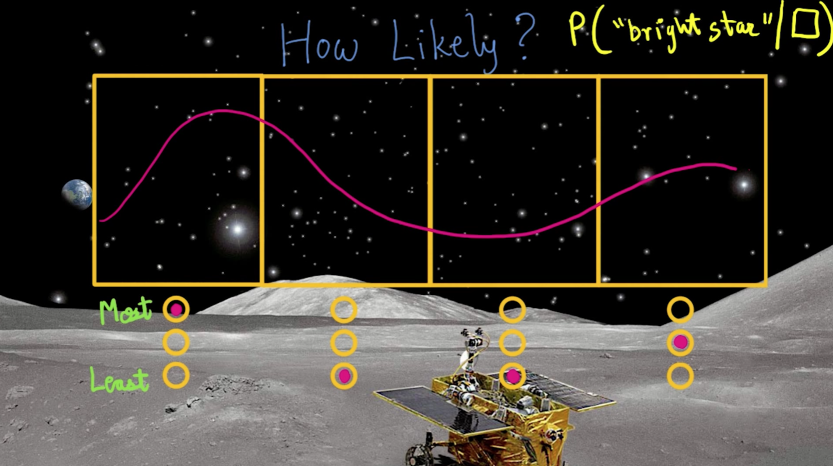 How Likely?
P("bright star"/□)
Most
Least